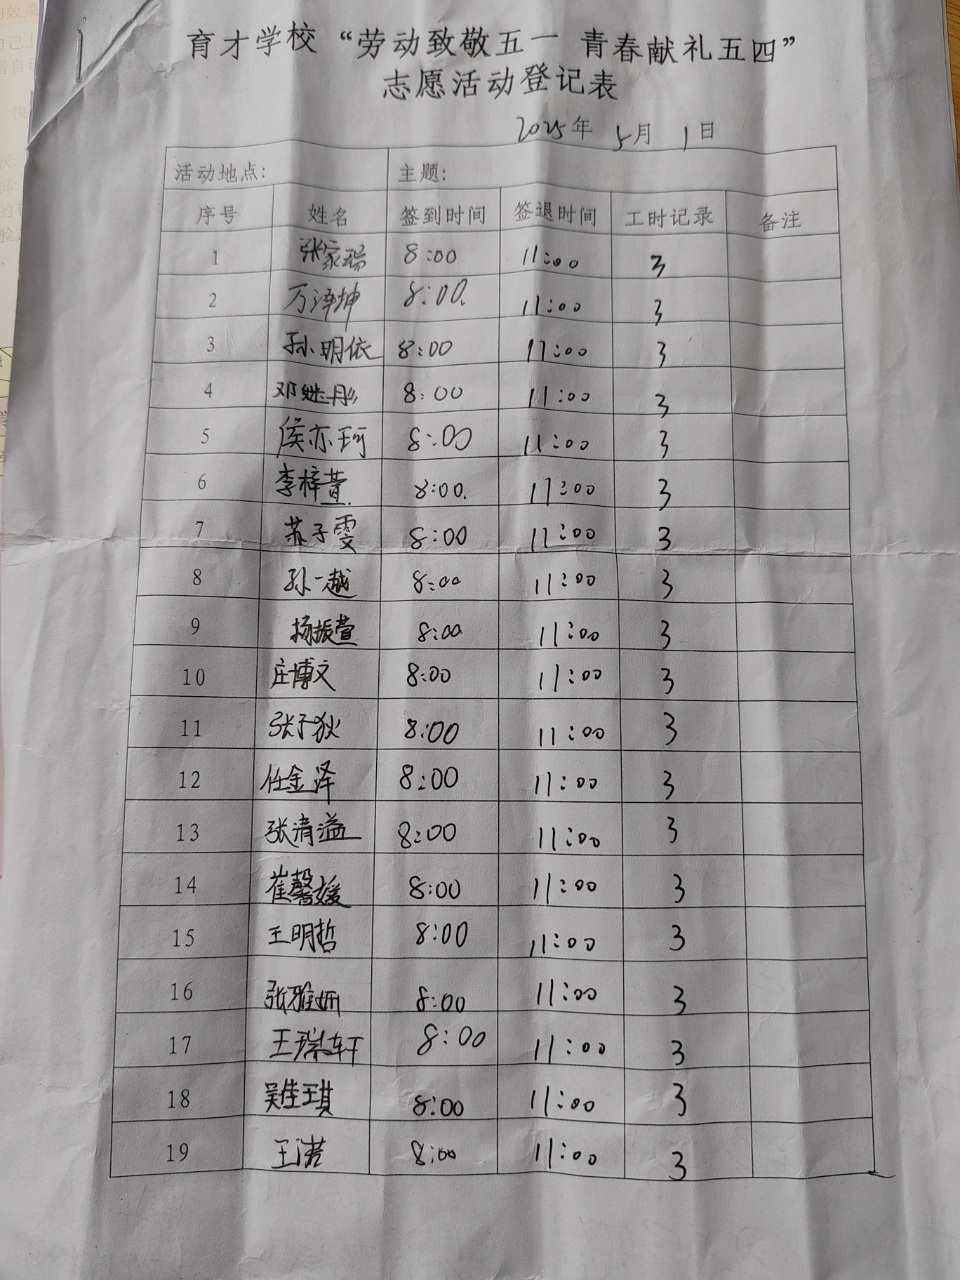 育才学校“劳动致敬五一 青春献礼五四”
志愿活动登记表
2025年 5月 1日
活动地点: 主题:
序号 姓名 签到时间 签退时间 工时记录 备注
1 张家瑞 8:00 11:00 3
2 万泽坤 8:00 11:00 3
3 孙明依 8:00 11:00 3
4 邓继彤 8:00 11:00 3
5 侯亦珂 8:00 11:00 3
6 李梓萱 8:00 11:00 3
7 苏子雯 8:00 11:00 3
8 孙一越 8:00 11:00 3
9 杨振萱 8:00 11:00 3
10 庄博文 8:00 11:00 3
11 张子狄 8:00 11:00 3
12 任金泽 8:00 11:00 3
13 张清溢 8:00 11:00 3
14 崔馨媛 8:00 11:00 3
15 王明哲 8:00 11:00 3
16 张雅妍 8:00 11:00 3
17 王瑞轩 8:00 11:00 3
18 吴佳琪 8:00 11:00 3
19 王诺 8:00 11:00 3